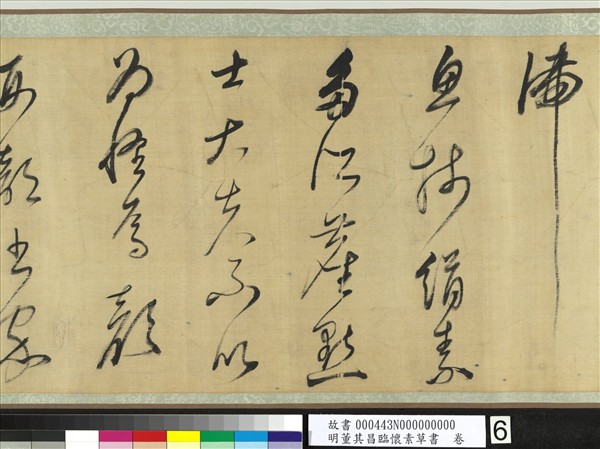 滯
魚牋絹素
多所塵點
士大夫不以
為怪焉顏
刑部書家
故書 000443N000000000
明董其昌臨懷素草書 卷
6